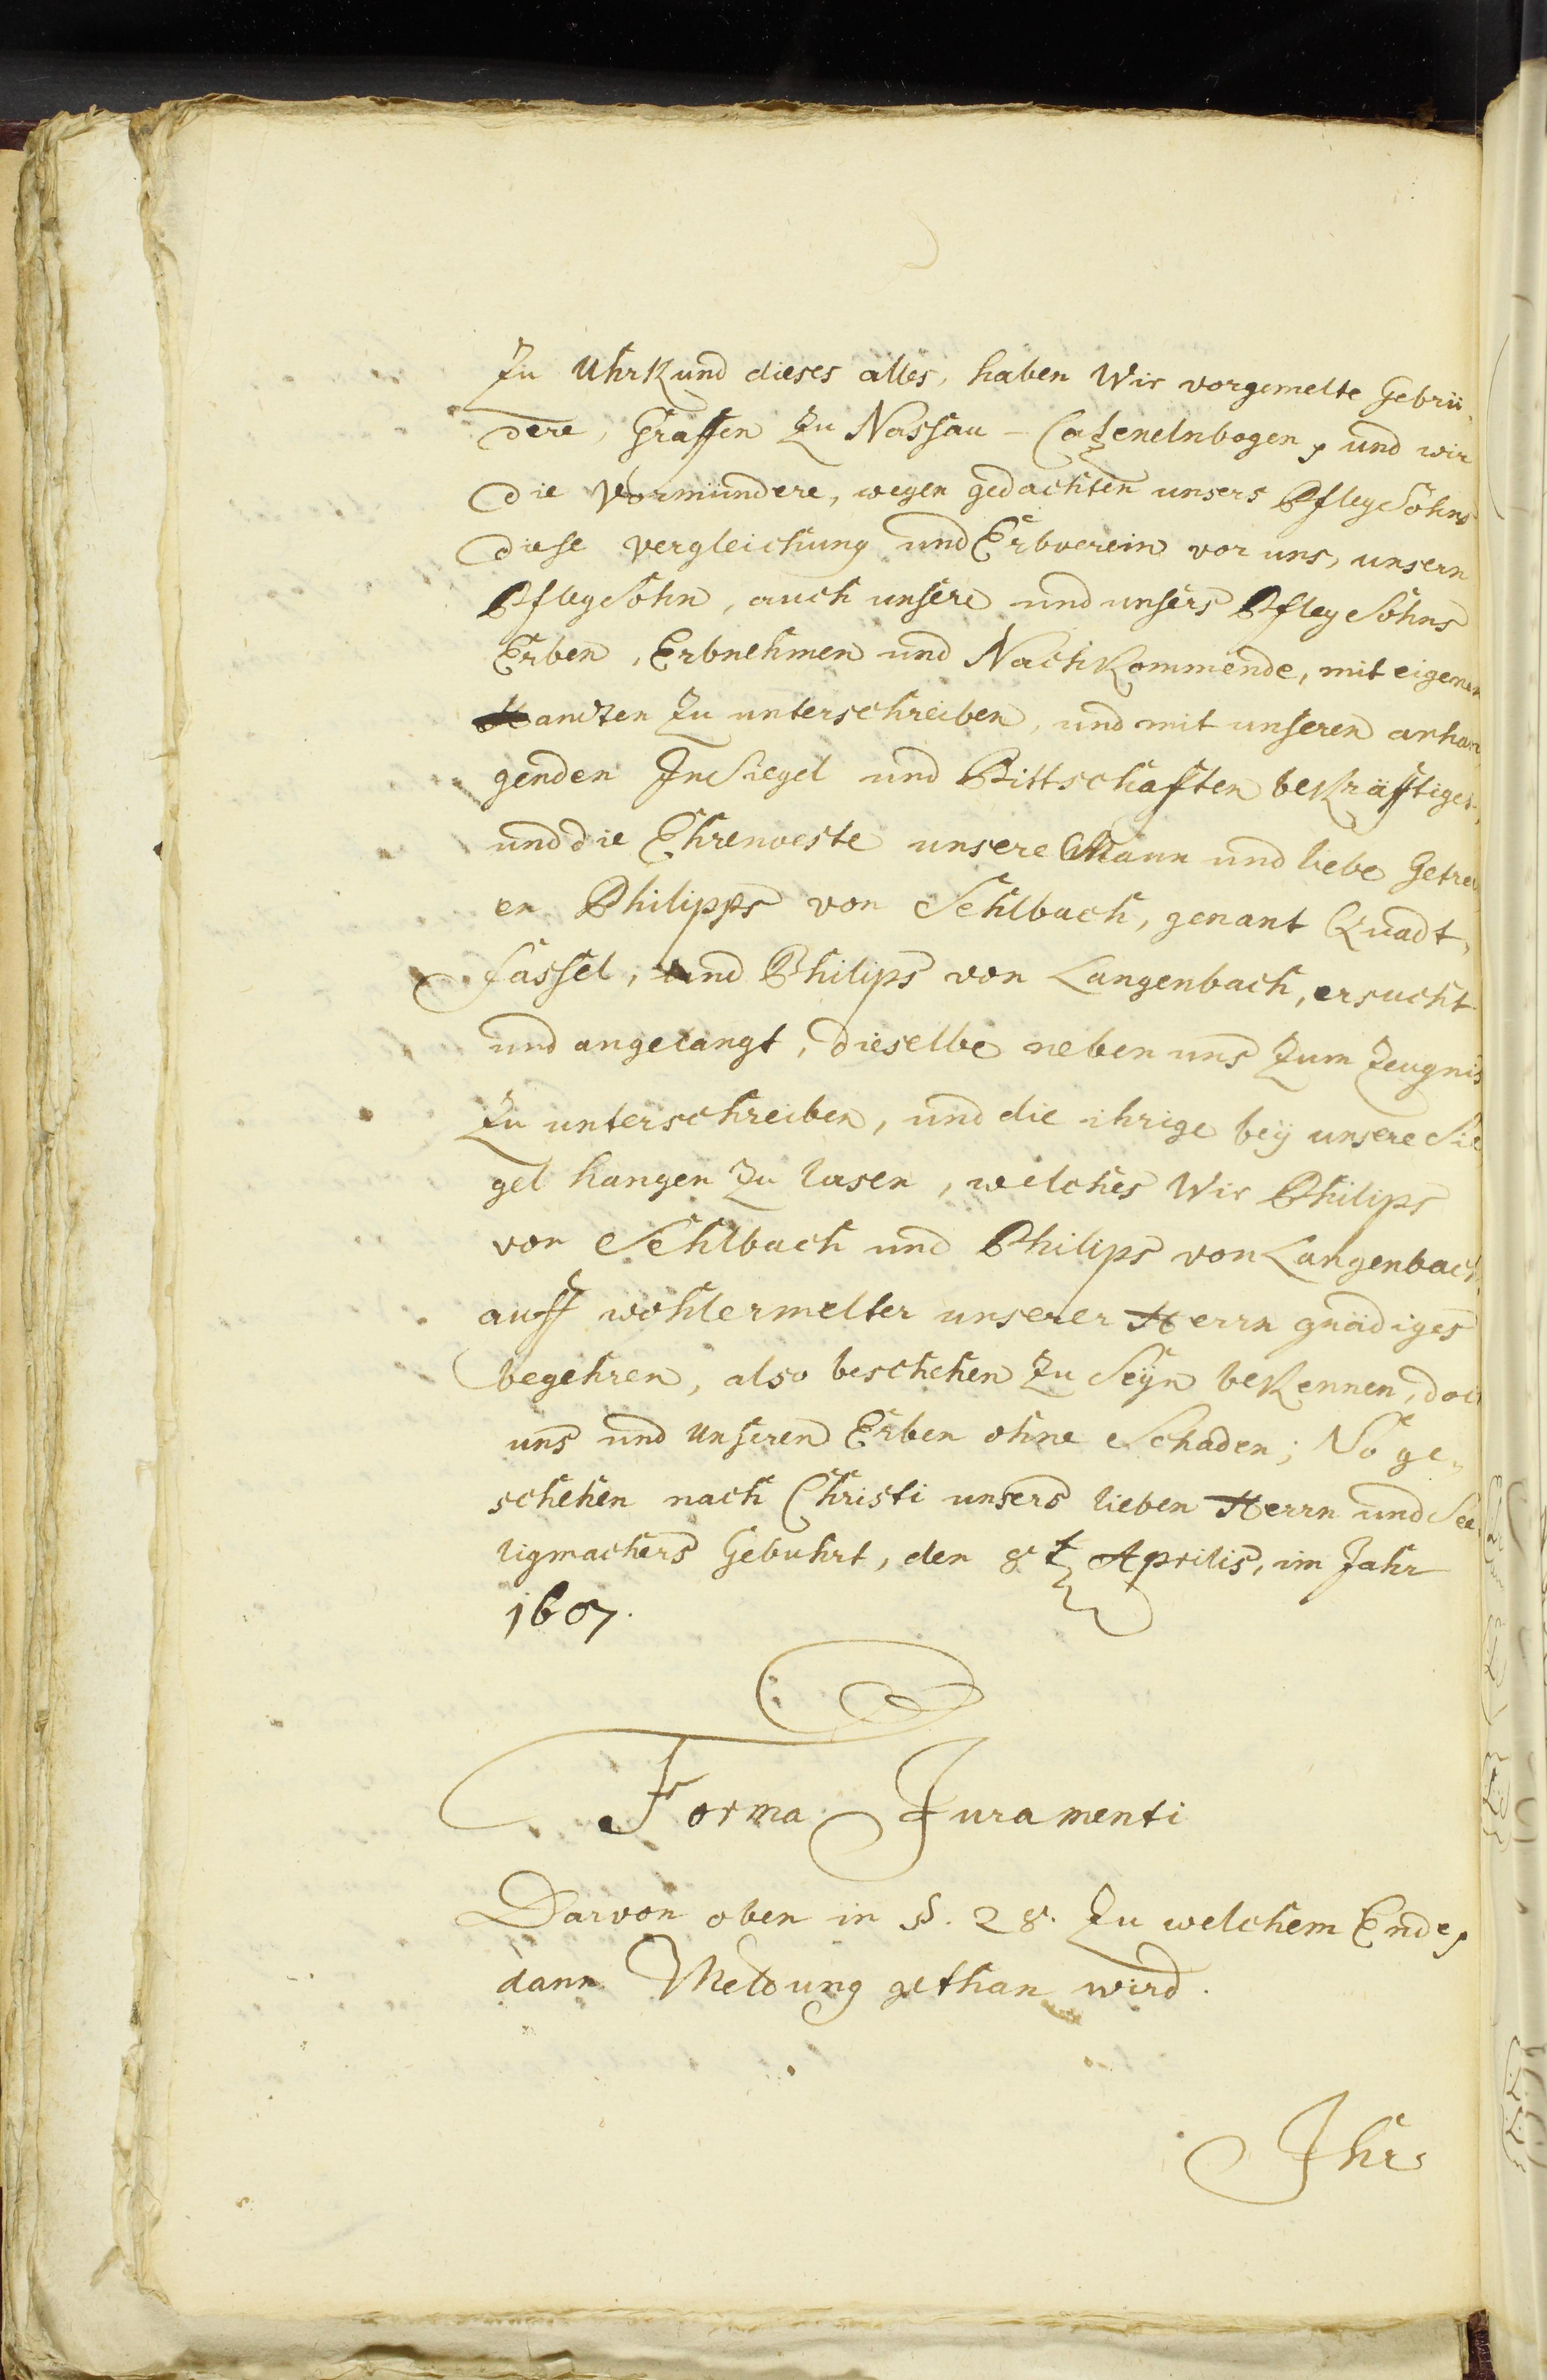 Zu Uhrkund dieses alles, haben Wir vorgemelte Gebrü-
dere, Graffen zu Nassau - Catzenelnbogen, und wir
die Vormündere, wegen gedachten unsers PflegSohns
diese vergleichung und Erbverein vor uns, unsern
PflegSohn, auch unsere und unsers PflegSohns
Erben, Erbnehmen und Nachkommende, mit eigenen
Handten zu unterschreiben, und mit unseren anhan
genden InSiegel und Pittschafften bekräfftiget,
und die Ehrenveste unsere Mann und liebe Getreu
en Philipps von Sehlbach, genant Quadt-
fassel, und Philips von Langenbach, ersucht
und angelangt, dieselbe neben uns zum Zeugnis
zu unterschreiben, und die ihrige beÿ unsere Sie
gel hangen zu lasen, welches Wir Philips
von Sehlbach und Philips von Langenbach
auff wohlermelter unserer Herrn gnädiges
begehren, also beschehen zu Seÿn bekennen, doch
uns und unseren Erben ohne Schaden; So ge-
schehen nach Christi unsers lieben Herrn und See
ligmachers Gebuhrt, den 8t Aprilis, im Jahr
1607.
Forma Juramenti
Darvon oben in §. 28. zu welchem Ende,
dann Meldung gethan wird.
Ihr